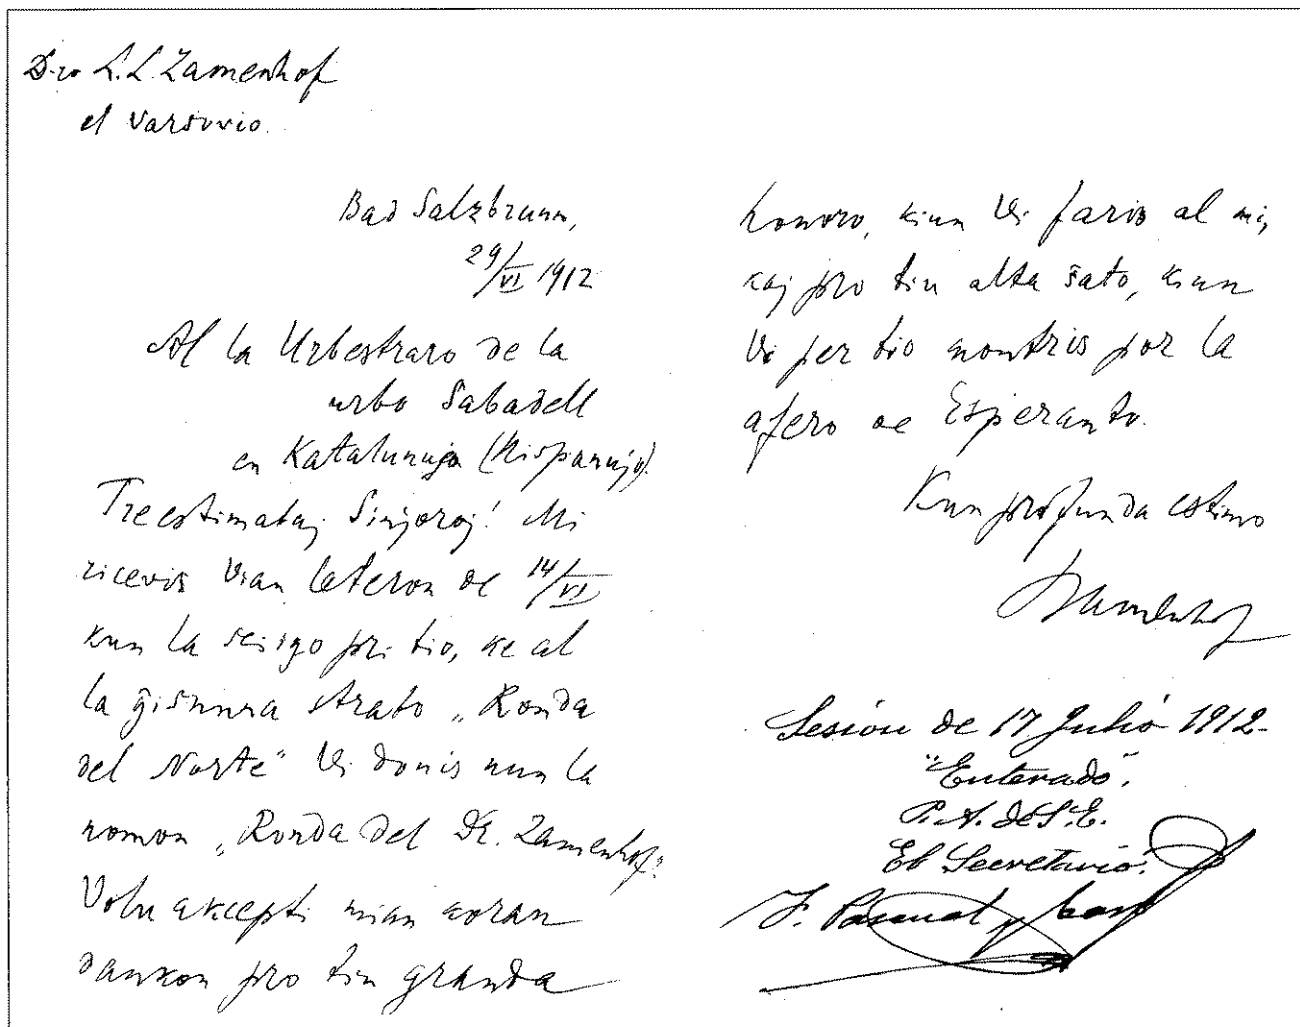 D-ro L. L. Zamenhof
el Varsovio.
Bad Salzbrunn,
29/VI 1912
Al la Urbestraro de la
urbo Sabadell
en Katalunujo (Hispanujo).
Treestimataj Sinjoroj! Mi
ricevis Vian leteron de 14/VI
kun la sciigo pri tio, ke al
la ĝisnuna strato „Ronda
del Norte" Vi donis nun la
nomon „Ronda del Dr. Zamenhof."
Volu akcepti mian koran
dankon pro tiu granda
honoro, kiun Vi faris al mi,
kaj pro tiu alta ŝato, kiun
Vi per tio montris por la
afero de Esperanto.
Kun profunda estimo
Zamenhof
Sesión de 17 Julio 1912-
"Enterado".
P. A. del S. E.
El Secretario.